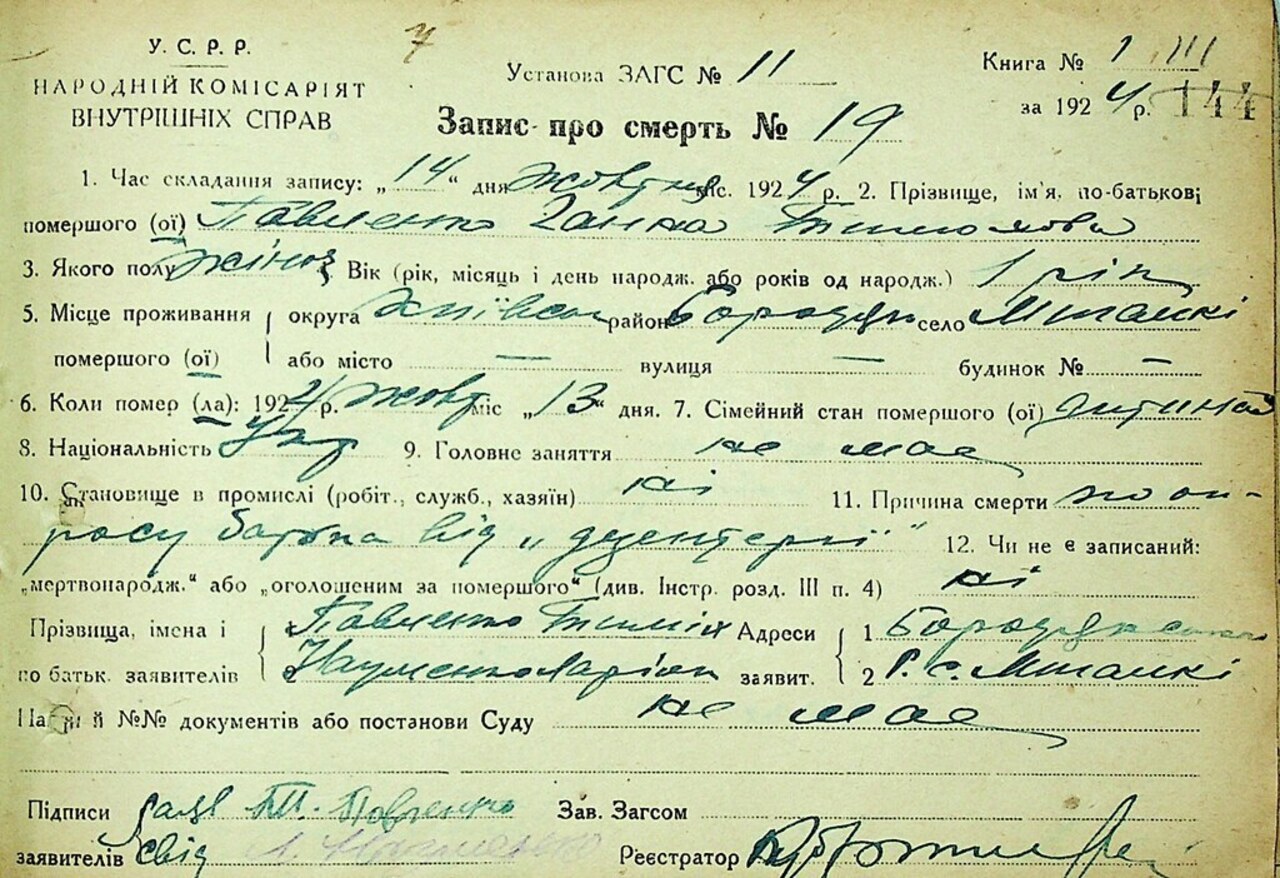 У. С. Р. Р.
7
НАРОДНІЙ КОМІСАРІЯТ
ВНУТРІШНІХ СПРАВ
Установа ЗАГС № 11
Книга № 1 III
за 1924 р. 144
Запис про смерть № 19
1. Час складання запису: „14“ дня жовтня міс. 1924 р. 2. Прізвище, ім'я, по-батькові
помершого (ої) Павленко Ганна Тимохова
3. Якого полу жіноч Вік (рік, місяць і день народж. або років од народж.) 1 рік
5. Місце проживання округа Київськ район Бородян село Мигалкі
помершого (ої) або місто — вулиця — будинок № —
6. Коли помер (ла): 1924 р. жовт міс „13“ дня. 7. Сімейний стан помершого (ої) дитина
8. Національність Укр 9. Головне заняття не має
10. Становище в промислі (робіт., служб., хазяїн) ні 11. Причина смерти по оп-
росу батька від „дезентерії“ 12. Чи не є записаний:
„мертвонародж.“ або „оголошеним за помершого“ (див. Інстр. розд. III п. 4) ні
Прізвища, імена і Павленко Тиміх Адреси 1 Бородянськ
по батьк. заявителів 2 Науменко Ларіон заявит. 2 Р. с. Мигалкі
№№ документів або постанови Суду не має
Підписи Т. Павленко Зав. Загсом
заявителів свід Реєстратор